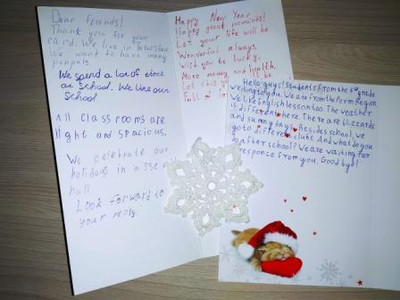 Dear friends!
Thank you for your
card. We live in
We want to have many
penpals.
We spend a lot of time
at School. We like our
School
All class rooms are
light and spacious.
We celebrate our
holidays in assembly
hall
Look forward to
your reply.
Happy New Year
Happy great moments!
Let your life will be
Wonderful always,
wish you be lucky,
More money and health.
Let this
Full of
Hello guys! Students from the 8th grade
writing to you. We are from the Perm Region.
We like English lesson too. The weather
is different here. There are blizzards
and sunny days. Besides school, we
go to different clubs. And what do you do
after school? We are waiting for
response from you. Goodbye!